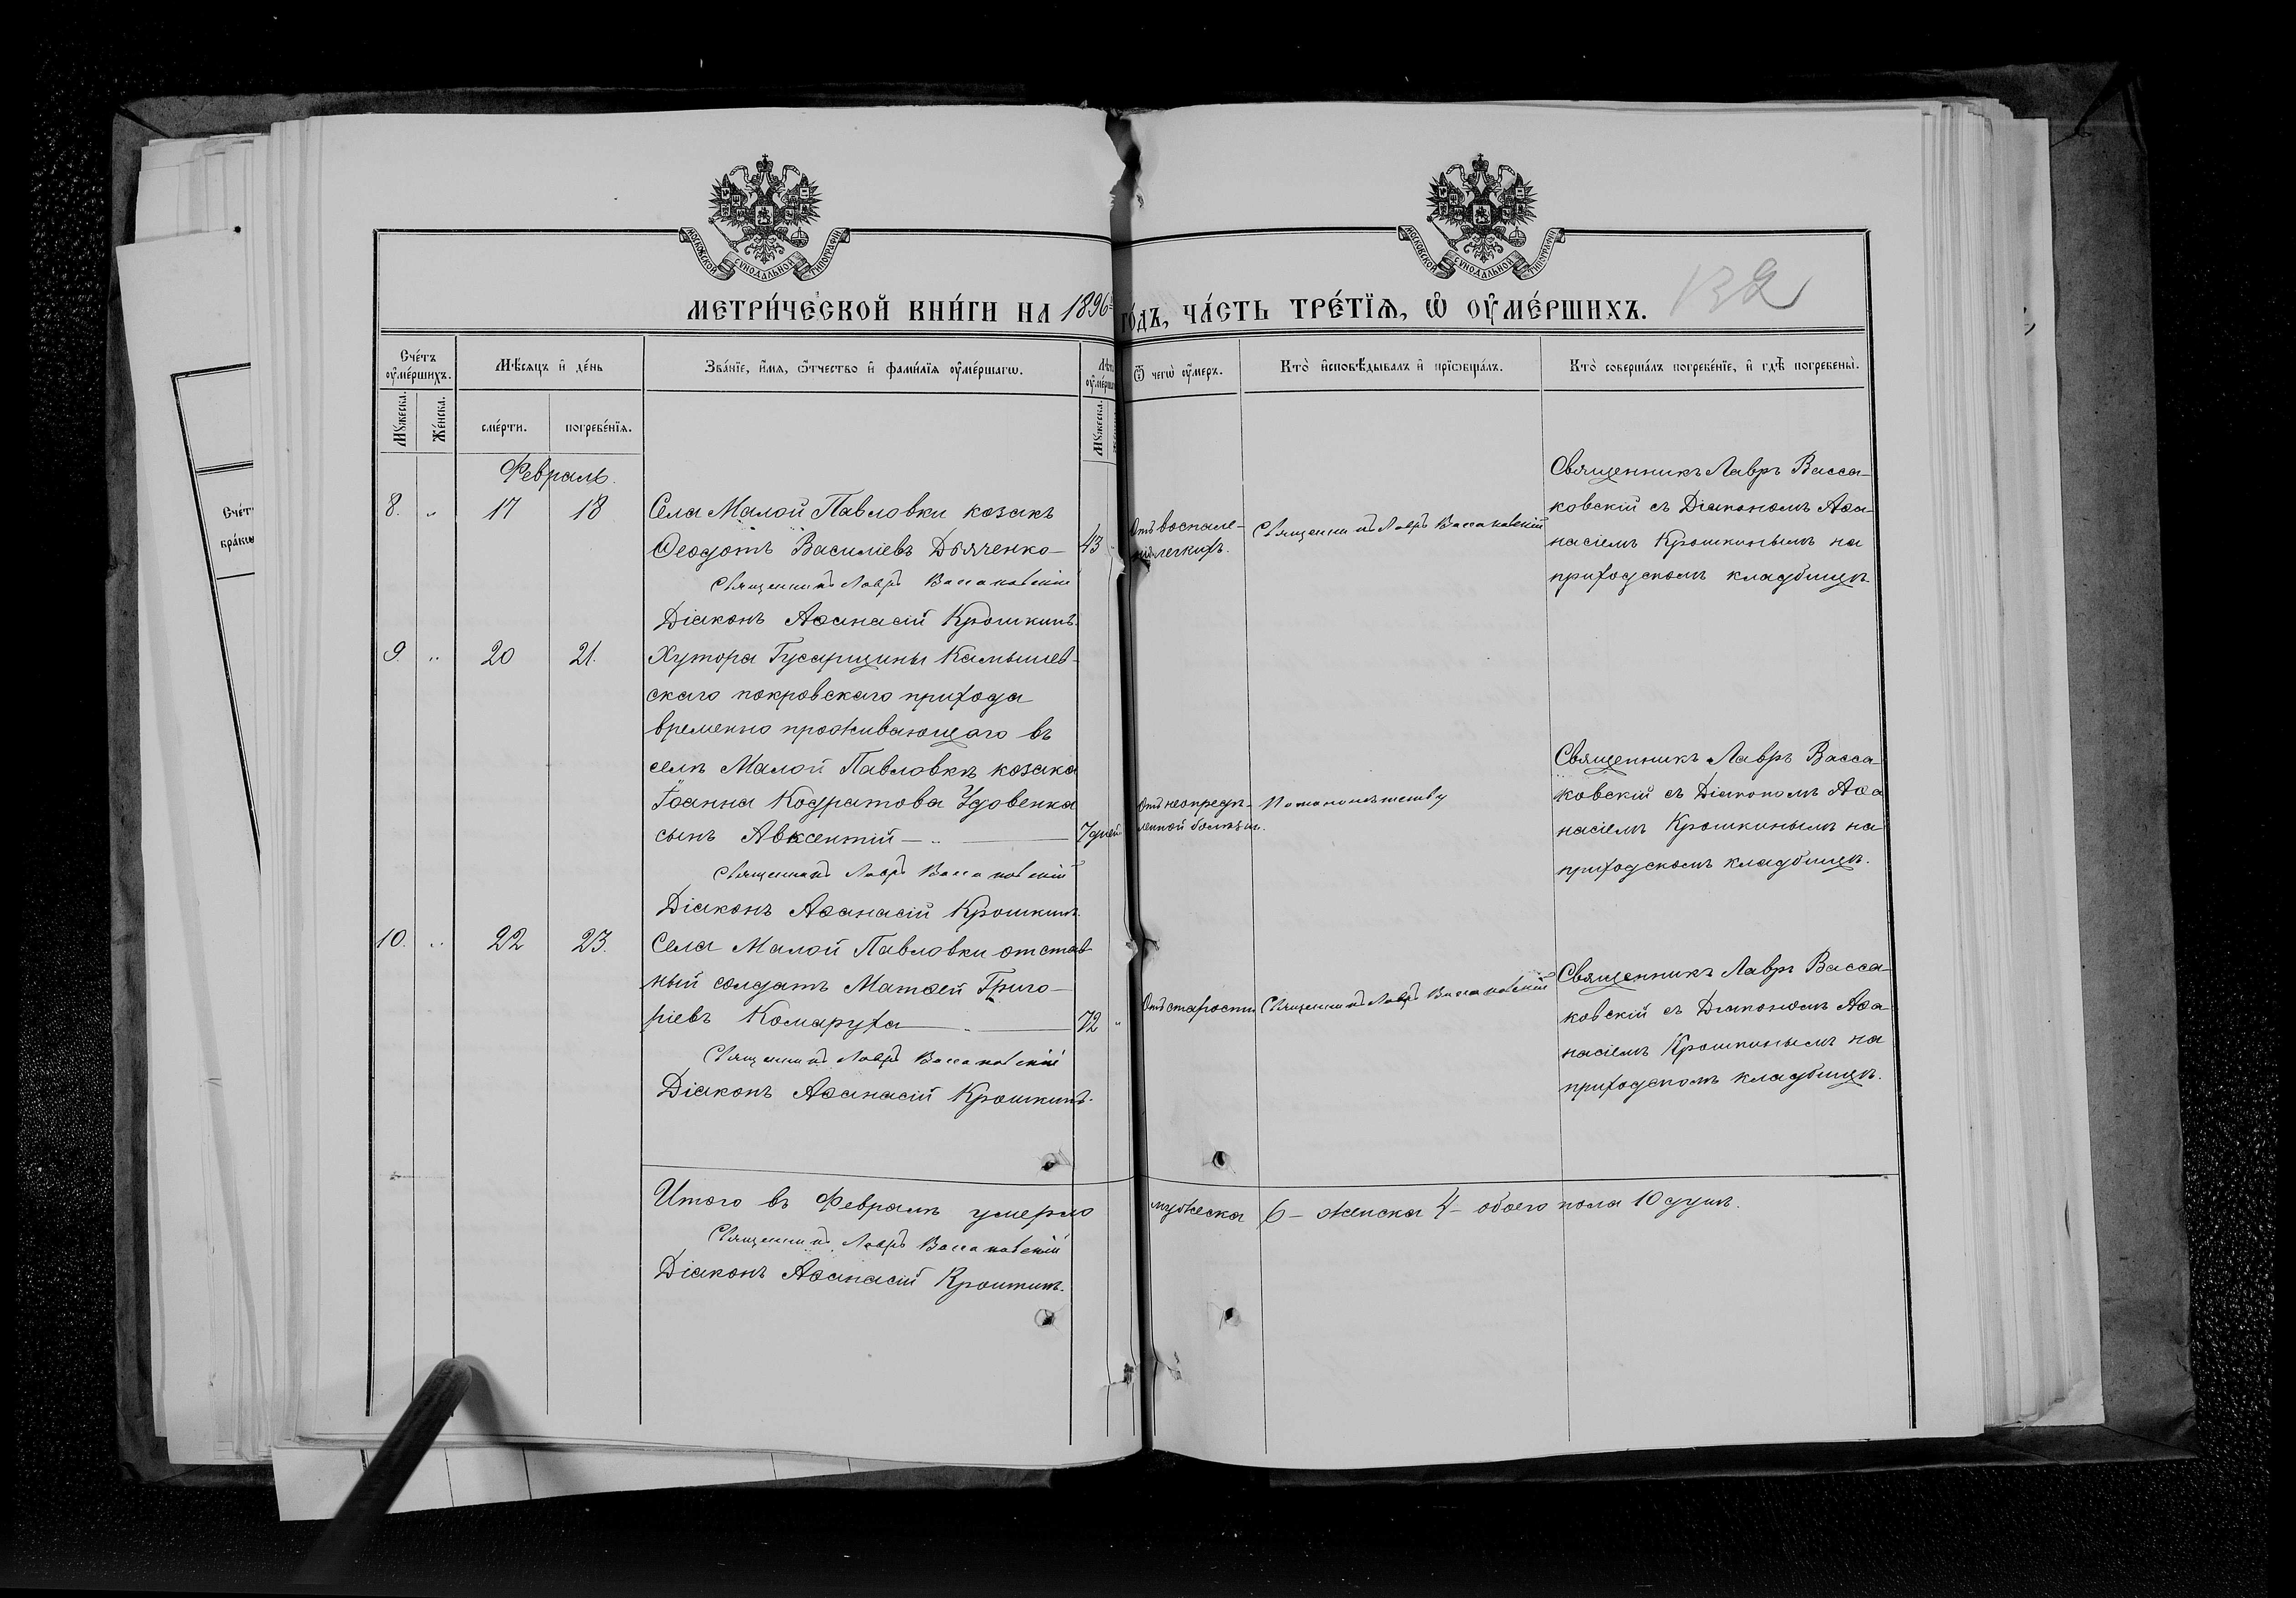 МОСКОВСКОЙ СУНОДАЛЬНОЙ ТИПОГРАФІИ
МОСКОВСКОЙ СУНОДАЛЬНОЙ ТИПОГРАФІИ
МЕТРИ́ЧЕСКОЙ КНИ́ГИ НА 1896 ГО́ДЪ, ЧА́СТЬ ТРЕ́ТІѦ, Ѡ҆ ОУ҆МЕ́РШИХЪ.
Сче́тъ оу҆ме́ршихъ.
Мѣ́сяцъ и҆ де́нь
Зва́нїе, и҆́мѧ, ѻ҆́тчество и҆ фами́лїѧ оу҆ме́ршагѡ.
Лѣ́т
оу҆ме́рш
Ѿ чегѡ̀ оу҆́меръ.
Кто̀ и҆сповѣ́дывалъ и҆ прїѡбща́лъ.
Кто̀ соверша́лъ погребе́нїе, и҆ гдѣ̀ погребены̀.
Мꙋ́жеска.
Же́нска.
сме́рти.
погребе́нїѧ.
Мꙋ́жеска.
Февраль.
8. „ 17 18 Села Малой Павловки козакъ
Ѳеодотъ Василіевъ Дьяченко— 43
Священникъ Лавръ Вассаковскій
Діаконъ Аѳанасій Крошкинъ.
Отъ воспале-
нія легкихъ.
Священникъ Лавръ Вассаковскій
Священникъ Лавръ Васса-
ковскій съ Діакономъ Аѳа-
насіемъ Крошкинымъ на
приходскомъ кладбищѣ.
9. „ 20 21. Хутора Гусарщины Камышев-
скаго покровскаго прихода
временно проживающаго въ
селѣ Малой Павловкѣ козака
Іоанна Кодратова Удовенка
сынъ Авксентій — „ — 7 дней
Священникъ Лавръ Вассаковскій
Діаконъ Аѳанасій Крошкинъ.
Отъ неопредѣ-
ленной болѣзни.
По малолѣтству
Священникъ Лавръ Васса-
ковскій съ Діакономъ Аѳа
насіемъ Крошкинымъ на
приходскомъ кладбищѣ.
10. „ 22 23. Села Малой Павловки отстав
ный солдатъ Матѳей Григо-
ріевъ Комаруха — „ — 72 „
Священникъ Лавръ Вассаковскій
Діаконъ Аѳанасій Крошкинъ.
Отъ старости
Священникъ Лавръ Вассаковскій
Священникъ Лавръ Васса-
ковскій съ Діакономъ Аѳа-
насіемъ Крошкинымъ на
приходскомъ кладбищѣ.
Итого въ Февралѣ умерло мужеска 6 – женска 4 – обоего пола 10 душъ.
Священникъ Лавръ Вассаковскій
Діаконъ Аѳанасій Крошкинъ.
Сче́т
бра́кѡ